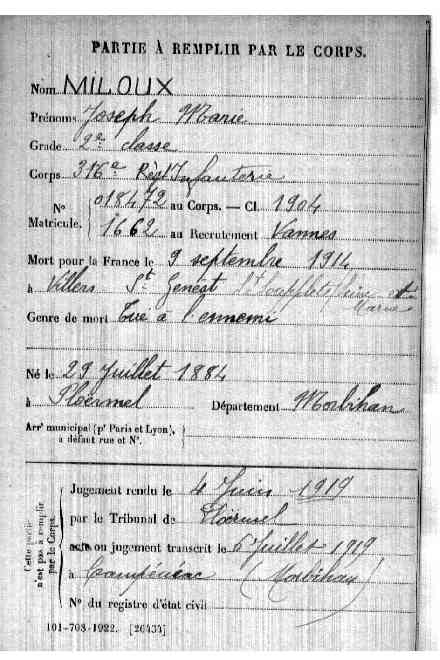 PARTIE À REMPLIR PAR LE CORPS.
Nom MILOUX
Prénoms Joseph Marie
Grade 2e classe
Corps 316e Régt Infanterie
N° 018472 au Corps. — Cl. 1904
Matricule. 1662 au Recrutement Vannes
Mort pour la France le 9 septembre 1914
à Villers St. Genest et
Marne
Genre de mort Tué à l'ennemi
Né le 29 Juillet 1884
à Ploërmel Département Morbihan
Arrt municipal (pr Paris et Lyon),
à défaut rue et N°.
Cette partie
n'est pas à remplir
par le Corps.
Jugement rendu le 4 Juin 1919
par le Tribunal de Ploërmel
acte ou jugement transcrit le 6 Juillet 1919
à Campénéac (Morbihan)
N° du registre d'état civil
101-708-1922. [26434]